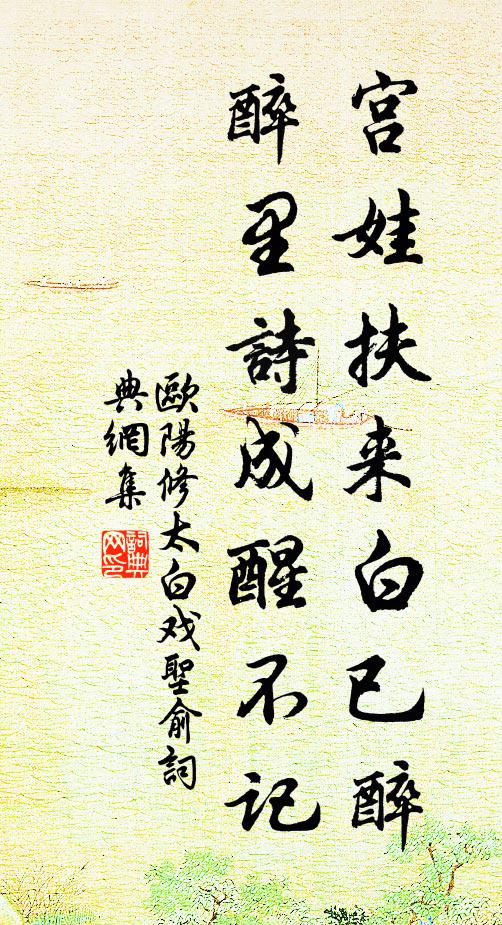 宫娃扶来白已醉
醉里詩成醒不记
歐陽修太白戏聖俞詞
典網集
詞典网印